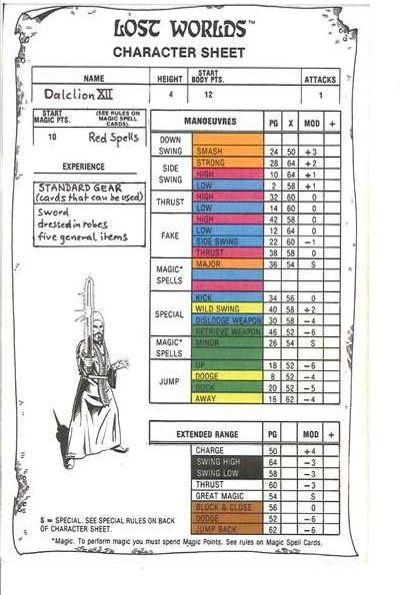 LOST WORLDS™
CHARACTER SHEET
NAME HEIGHT START BODY PTS. ATTACKS
Dalclion XII 4 12 1
START MAGIC PTS. (SEE RULES ON MAGIC SPELL CARDS)
10 Red Spells
EXPERIENCE
STANDARD GEAR
(cards that can be used)
sword
dressed in robes
five general items
MANOEUVRES PG X MOD +
DOWN SWING
SMASH 24 50 +3
SIDE SWING
STRONG 28 64 +2
HIGH 10 64 +1
LOW 2 58 +1
THRUST
HIGH 32 60 0
LOW 14 60 0
FAKE
HIGH 42 58 0
LOW 12 64 0
SIDE SWING 22 60 −1
THRUST 38 58 0
MAGIC* SPELLS
MAJOR 36 54 S
SPECIAL
KICK 34 56 0
WILD SWING 40 58 +2
DISLODGE WEAPON 30 58 −4
RETRIEVE WEAPON 46 52 −6
MAGIC* SPELLS
MINOR 26 54 S
JUMP
UP 18 52 −6
DODGE 8 52 −4
DUCK 20 52 −5
AWAY 16 62 −4
EXTENDED RANGE PG MOD +
CHARGE 50 +4
SWING HIGH 64 −3
SWING LOW 58 −3
THRUST 60 −3
GREAT MAGIC 54 S
BLOCK & CLOSE 56 0
DODGE 52 −6
JUMP BACK 62 −6
S = SPECIAL. SEE SPECIAL RULES ON BACK
OF CHARACTER SHEET.
*Magic. To perform magic you must spend Magic Points. See rules on Magic Spell Cards.